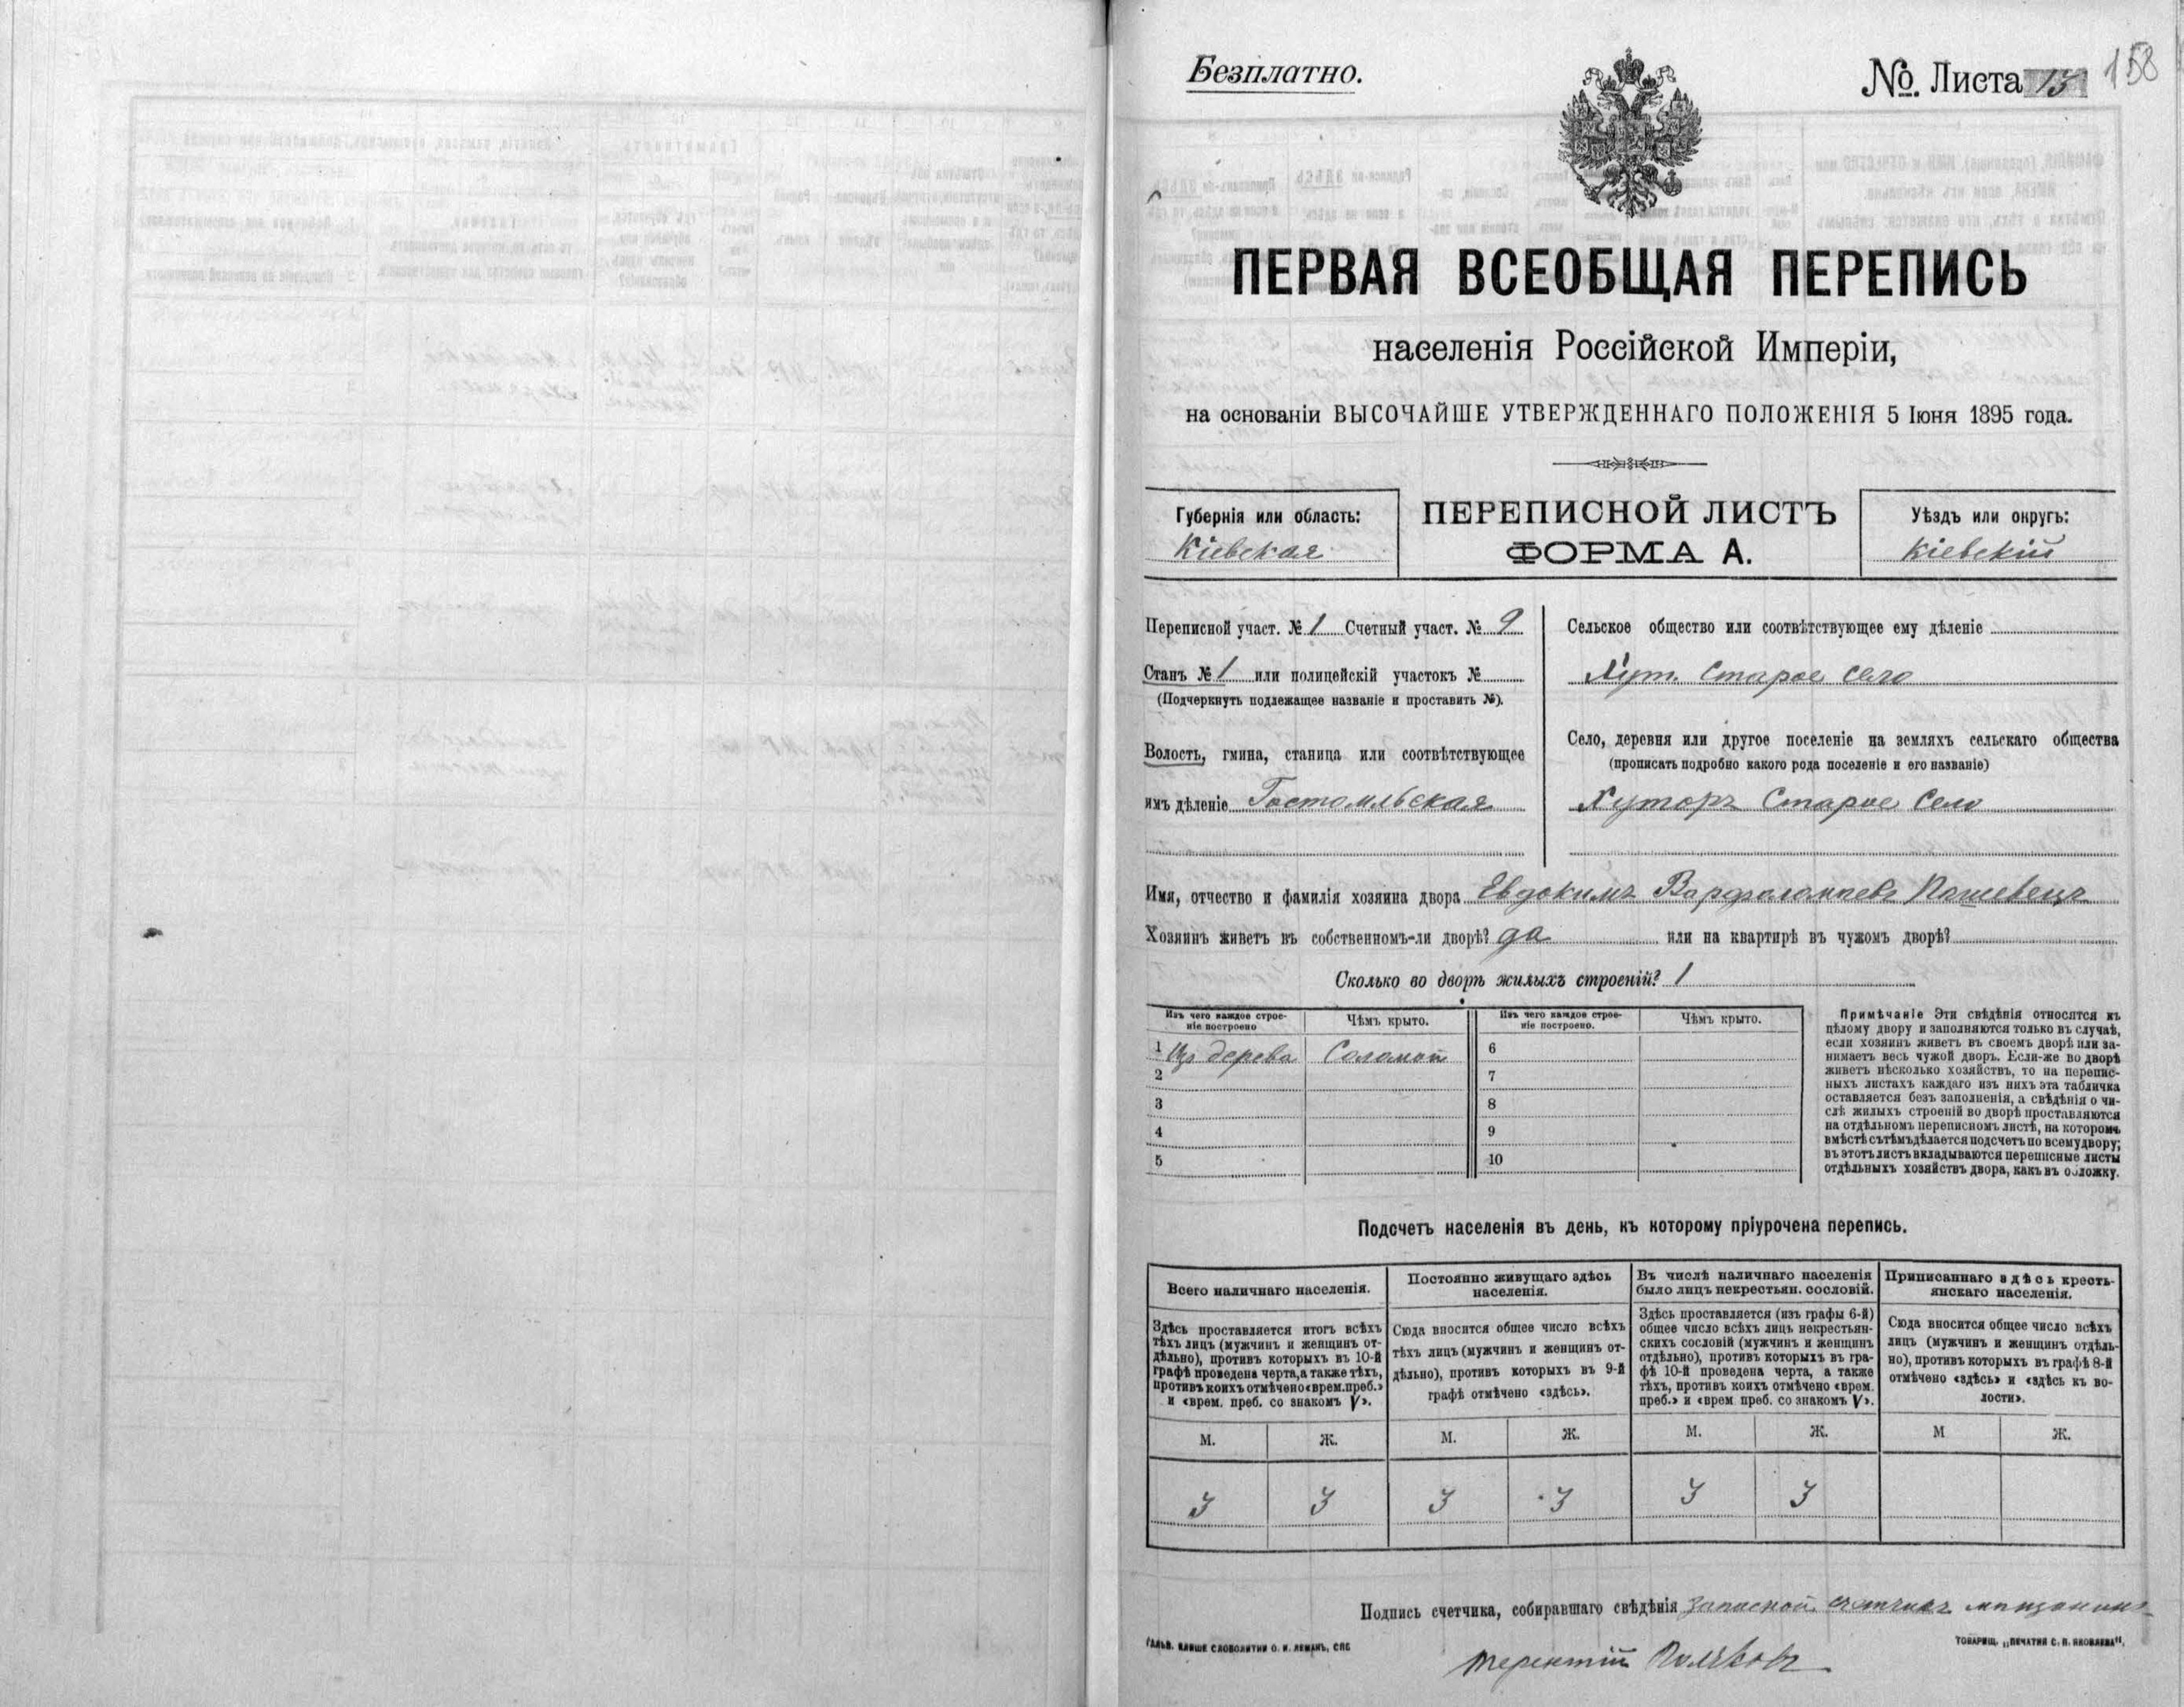 Безплатно.
№. Листа 15
158
ПЕРВАЯ ВСЕОБЩАЯ ПЕРЕПИСЬ
населенія Россійской Имперіи,
на основаніи ВЫСОЧАЙШЕ УТВЕРЖДЕННАГО ПОЛОЖЕНІЯ 5 Іюня 1895 года.
Губернія или область:
Кіевская
ПЕРЕПИСНОЙ ЛИСТЪ
ФОРМА А.
Уѣздъ или округъ:
Кіевскій
Переписной участ. № 1 Счетный участ. № 9
Станъ № 1 или полицейскій участокъ №
(Подчеркнуть подлежащее названіе и проставить №).
Волость, гмина, станица или соотвѣтствующее
имъ дѣленіе Гостомльская
Сельское общество или соотвѣтствующее ему дѣленіе
Хут. Старое село
Село, деревня или другое поселеніе на земляхъ сельскаго общества
(прописать подробно какого рода поселеніе и его названіе)
Хуторъ Старое Село
Имя, отчество и фамилія хозяина двора Евдокимъ Варфоломаевъ Пашевецъ
Хозяинъ живетъ въ собственномъ-ли дворѣ? да или на квартирѣ въ чужомъ дворѣ?
Сколько во дворѣ жилыхъ строеній? 1
Изъ чего каждое строе-
ніе построено
Чѣмъ крыто.
Изъ чего каждое строе-
ніе построено.
Чѣмъ крыто.
1 Из дерева Соломой
2
3
4
5
6
7
8
9
10
Примѣчаніе Эти свѣдѣнія относятся къ
цѣлому двору и заполняются только въ случаѣ,
если хозяинъ живетъ въ своемъ дворѣ или за-
нимаетъ весь чужой дворъ. Если-же во дворѣ
живетъ нѣсколько хозяйствъ, то на перепис-
ныхъ листахъ каждаго изъ нихъ эта табличка
оставляется безъ заполненія, а свѣдѣнія о чи-
слѣ жилыхъ строеній во дворѣ проставляются
на отдѣльномъ переписномъ листѣ, на которомъ
вмѣстѣ съ тѣмъ дѣлается подсчетъ по всему двору;
въ этотъ листъ вкладываются переписные листы
отдѣльныхъ хозяйствъ двора, какъ въ обложку.
Подсчетъ населенія въ день, къ которому пріурочена перепись.
Всего наличнаго населенія.
Здѣсь проставляется итогъ всѣхъ
тѣхъ лицъ (мужчинъ и женщинъ от-
дѣльно), противъ которыхъ въ 10-й
графѣ проведена черта, а также тѣхъ,
противъ коихъ отмѣчено «врем. преб.»
и «врем. преб. со знакомъ V».
М. Ж.
3 3
Постоянно живущаго здѣсь
населенія.
Сюда вносится общее число всѣхъ
тѣхъ лицъ (мужчинъ и женщинъ от-
дѣльно), противъ которыхъ въ 9-й
графѣ отмѣчено «здѣсь».
М. Ж.
3 3
Въ числѣ наличнаго населенія
было лицъ некрестьян. сословій.
Здѣсь проставляется (изъ графы 6-й)
общее число всѣхъ лицъ некрестьян-
скихъ сословій (мужчинъ и женщинъ
отдѣльно), противъ которыхъ въ гра-
фѣ 10-й проведена черта, а также
тѣхъ, противъ коихъ отмѣчено «врем.
преб.» и «врем преб. со знакомъ V».
М. Ж.
3 3
Приписаннаго здѣсь кресть-
янскаго населенія.
Сюда вносится общее число всѣхъ
лицъ (мужчинъ и женщинъ отдѣль-
но), противъ которыхъ въ графѣ 8-й
отмѣчено «здѣсь» и «здѣсь къ во-
лости».
М Ж.
Подпись счетчика, собиравшаго свѣдѣнія Запасной счетчикъ мѣщанинъ
Терентій Поляковъ
ГАЛЬВ. КЛИШЕ СЛОВОЛИТНИ О. И. ЛЕМАНЪ, СПБ
ТОВАРИЩ. „ПЕЧАТНЯ С. П. ЯКОВЛЕВА".